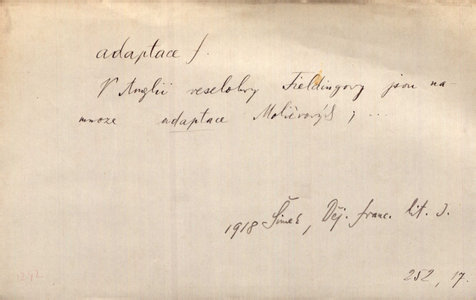 adaptace f.
V Anglii veselohry Fieldingovy jsou na-
mnoze adaptace Molièrových ; ...
1918 Šimek, Děj. franc. lit. I.
252, 17.